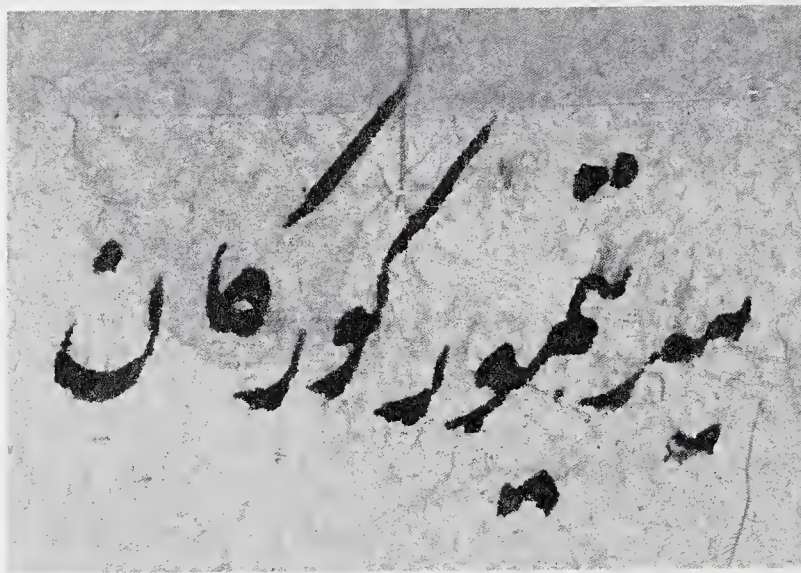 میر تیمور کورکان